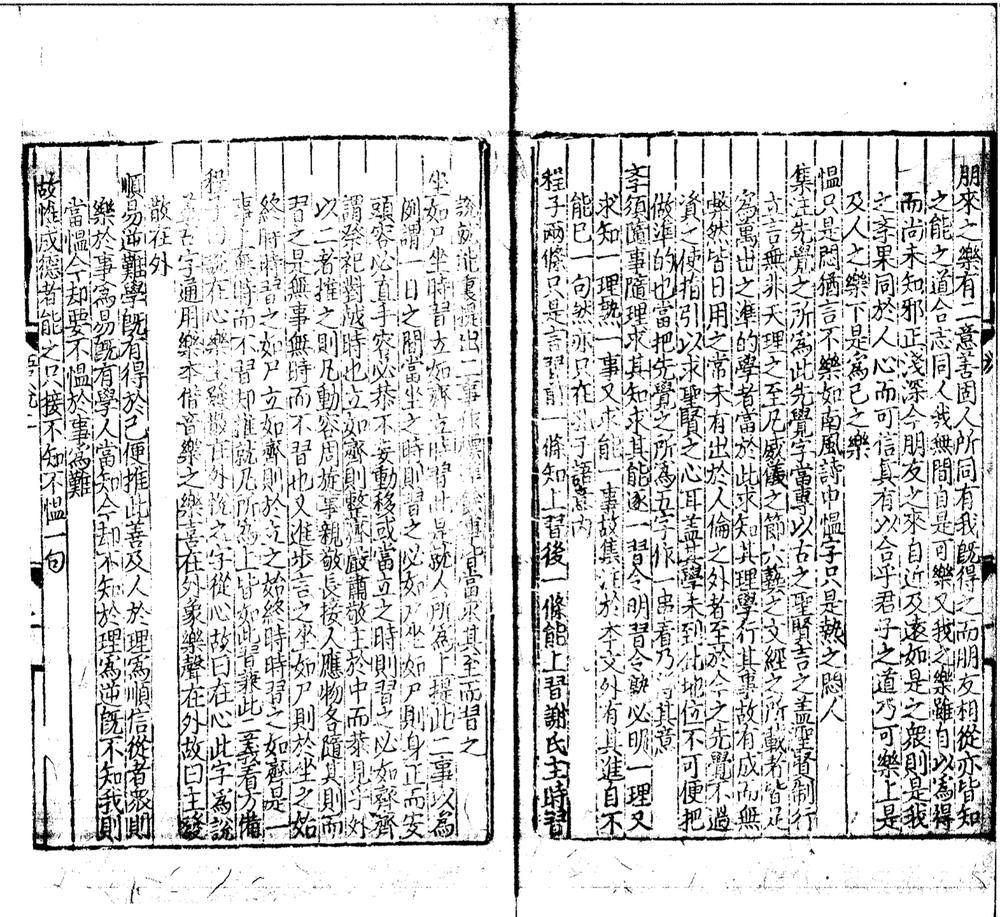 朋來之樂有二意善固人所同有我旣得之而朋友相從亦皆知
之能之道合志同人我無間自是可樂又我之樂雖自以為得
而尚未知邪正淺深今朋友之來自近及遠如是之衆則是我
之孝果同於人心而可信真有以合乎君子之道乃可樂上是
及人之樂下是為己之樂
愠只是悶猶言不樂如南風詩中愠字只是熱之悶人
集注先覺之所為此先覺字當專以古之聖賢言之盖聖賢制行
立言無非天理之至凡威儀之節六藝之文經之所載者皆足
為萬世之準的學者當於此求知其理學行其事故有成而無
弊然皆日用之常未有出於人倫之外者至於今之先覺不過
資之使指引以求聖賢之心耳盖其學未到此地位不可便把
做準的也當把先覺之所為五字作一串看乃得其意
孝須隨事隨理求其知求其能逐一習令明習令熟必明一理又
求知一理熟一事又求能一事故集注於本文外有其進自不
能已一句然亦只在於語意內
程子兩條只是言習前一條知上習後一條能上習謝氏主時習
說就能復提出二事作標準餘事皆當求其至而習之
坐如尸坐時習立如齊立時習此是就人所為上提此二事以為
例謂一日之間當坐之時則習之必如尸坐如尸則身正而安
頭容必直手容必恭不妄動移或當立之時則習之必如齊齊
謂祭祀對越時也立如齊則整齊嚴肅敬主於中而恭見于外
以二者推之則凡動容周旋事親敬長接人應物各隨其則而
習之是無事無時而不習也又進步言之坐如尸則於坐之始
終時時習之如尸立如齊則於立之始終時時習之如齊是一
事亦無時而不習却推就凡所為上皆如此皆兼此二義看方備
程子曰說在心樂主發散在外說之字從心故曰在心此字為說
喜古字通用樂本借音樂之樂喜在外象樂聲在外故曰主發
散在外
順易逆難學旣有得於己便推此善及人於理為順信從者衆則
樂於事為易旣有學人當知今却不知於理為逆旣不知我則
當愠今却要不愠於事為難
故惟成德者能之只接不知不愠一句